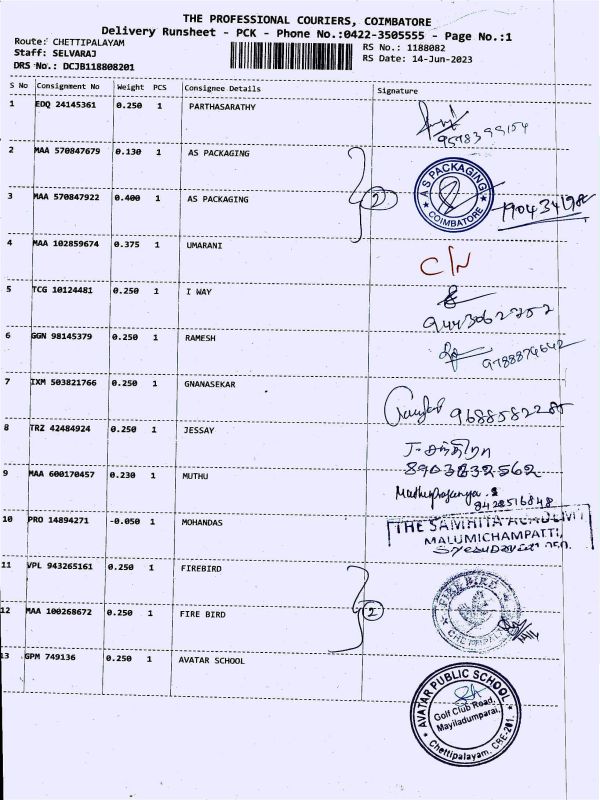 THE PROFESSIONAL COURIERS, COIMBATORE
Delivery Runsheet - PCK - Phone No.:0422-3505555 - Page No.:1
Route: CHETTIPALAYAM
RS No.: 1188082
Staff: SELVARAJ
RS Date: 14-Jun-2023
DRS No.: DCJB118808201
S No Consignment No Weight PCS Consignee Details Signature
1 EDQ 24145361 0.250 1 PARTHASARATHY
2 MAA 570847679 0.130 1 AS PACKAGING
AS PACKAGING
COIMBATORE
3 MAA 570847922 0.400 1 AS PACKAGING
2
4 MAA 102859674 0.375 1 UMARANI
C/N
5 TCG 10124481 0.250 1 I WAY
6 GGN 98145379 0.250 1 RAMESH
7 IXM 503821766 0.250 1 GNANASEKAR
8 TRZ 42484924 0.250 1 JESSAY
8903832562
9 MAA 600170457 0.230 1 MUTHU
9428516848
10 PRO 14894271 -0.050 1 MOHANDAS
THE SAMHITA ACADEMY
MALUMICHAMPATTI,
11 VPL 943265161 0.250 1 FIREBIRD
FIRE BIRD
12 MAA 100268672 0.250 1 FIRE BIRD
2
13 GPM 749136 0.250 1 AVATAR SCHOOL
AVATAR PUBLIC SCHOOL
Golf Club Road,
Mayiladumparai,
Chettipalayam, CBE-201.